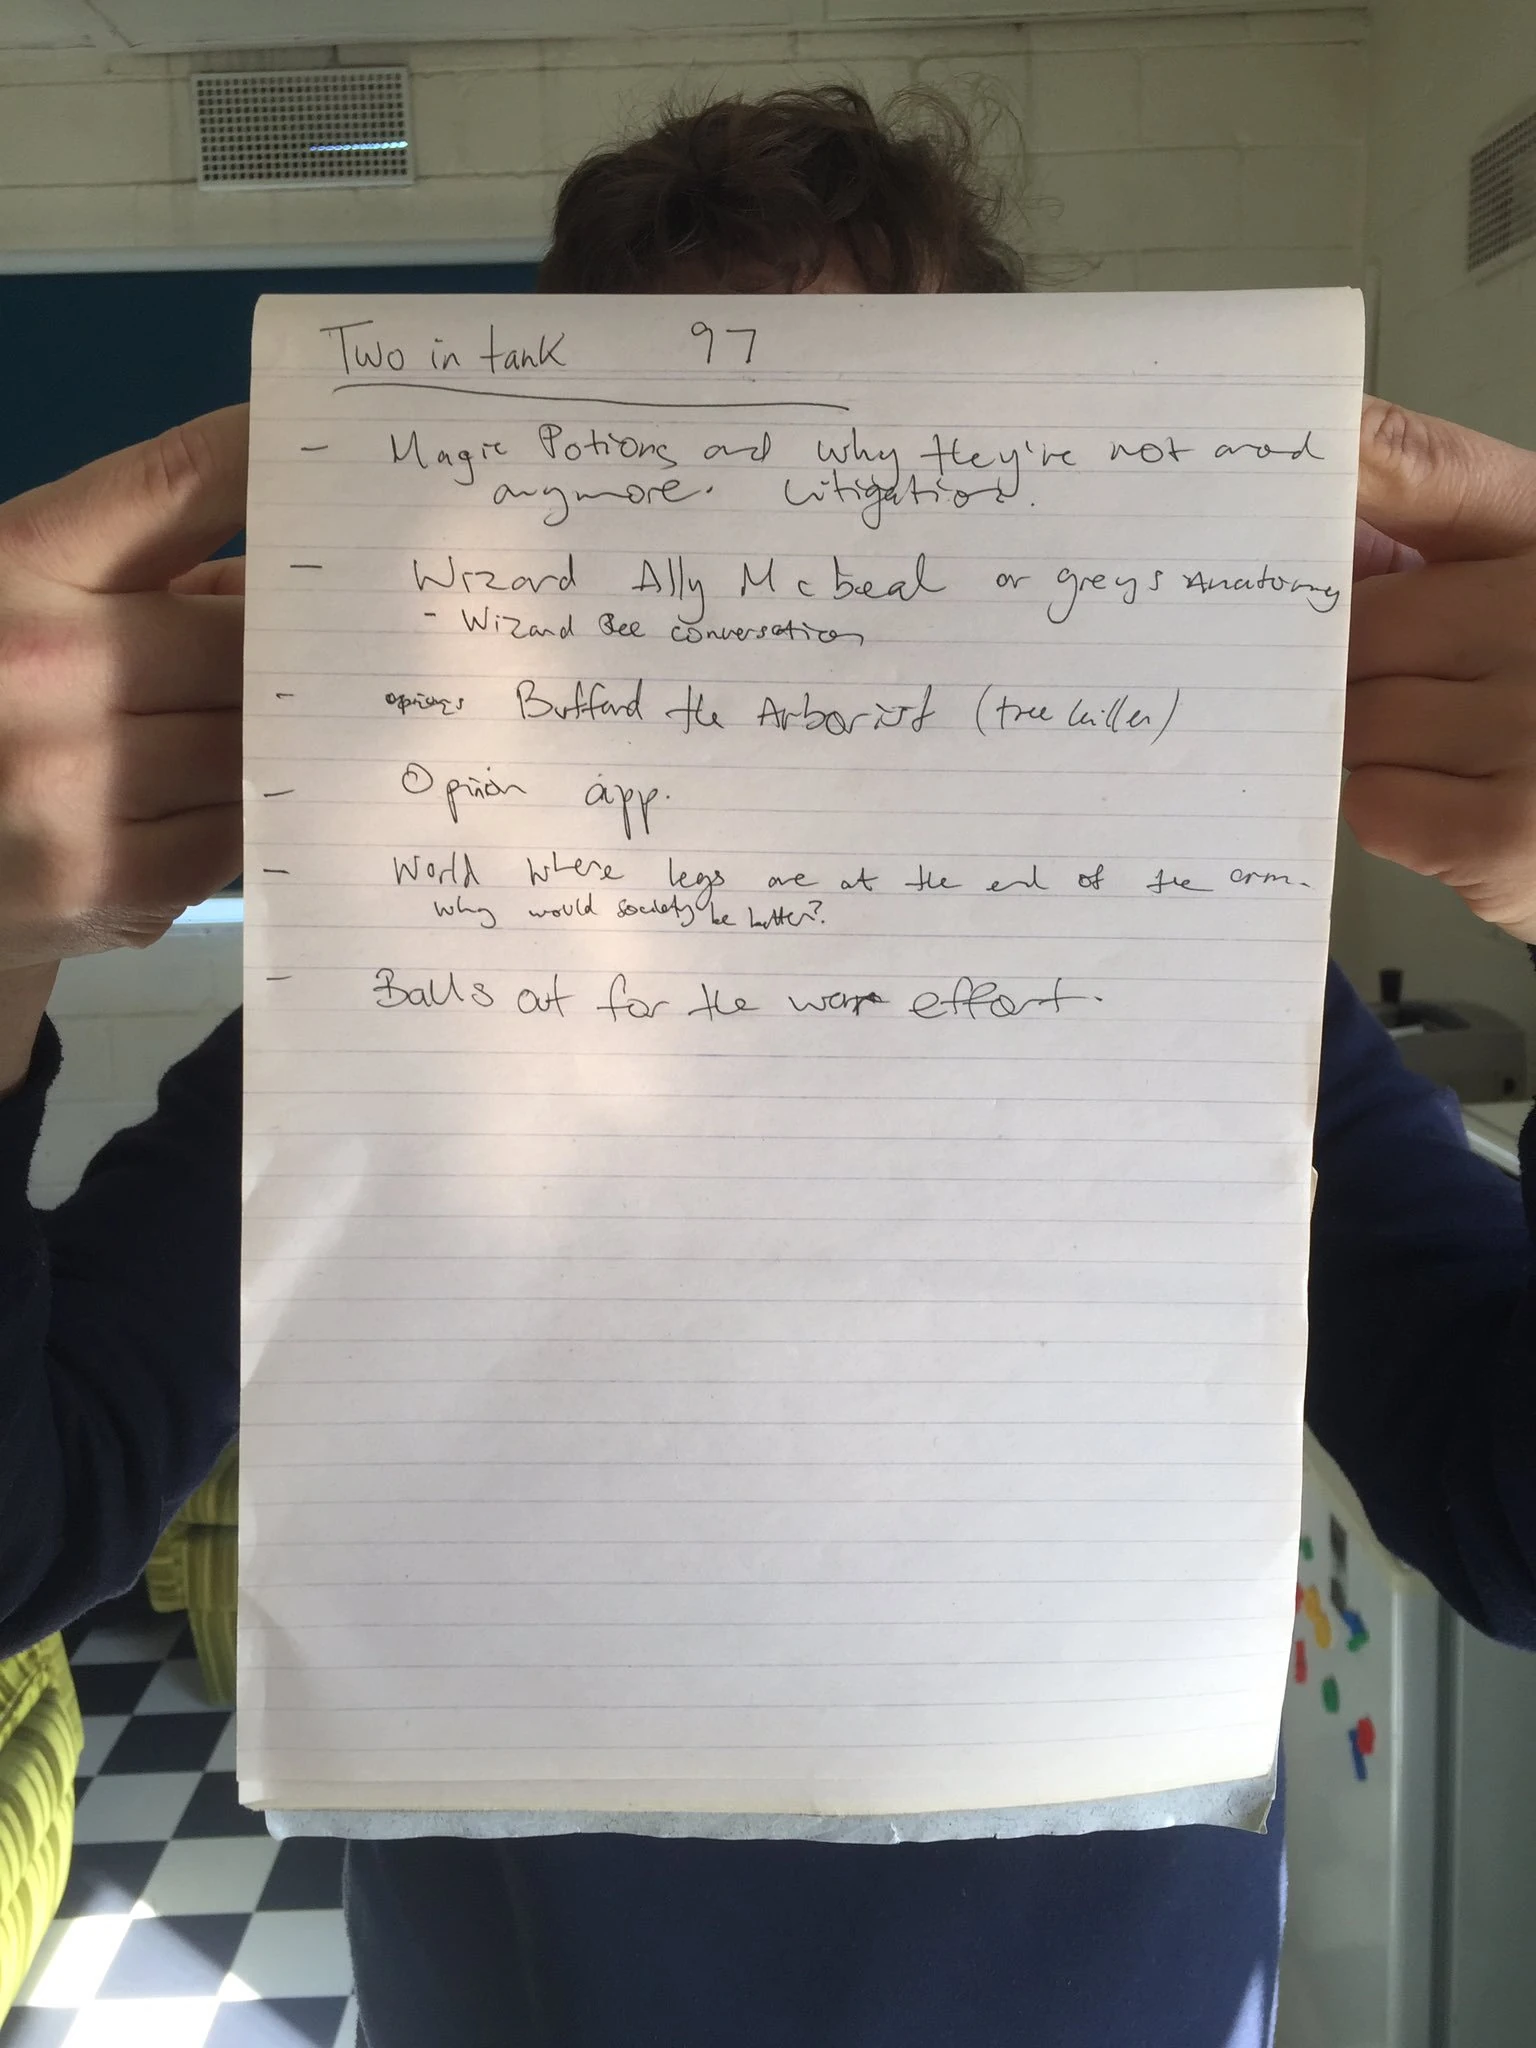 Two in tank 97
- Magic Potions and why they're not around
anymore. Litigation.
- Wizard Ally Mcbeal or greys Anatomy
- Wizard Bee conversation
- Buffard the Arborist (tree killer)
- Opinion app.
- World where legs are at the end of the arm.
why would society be better?
- Balls out for the war effort.